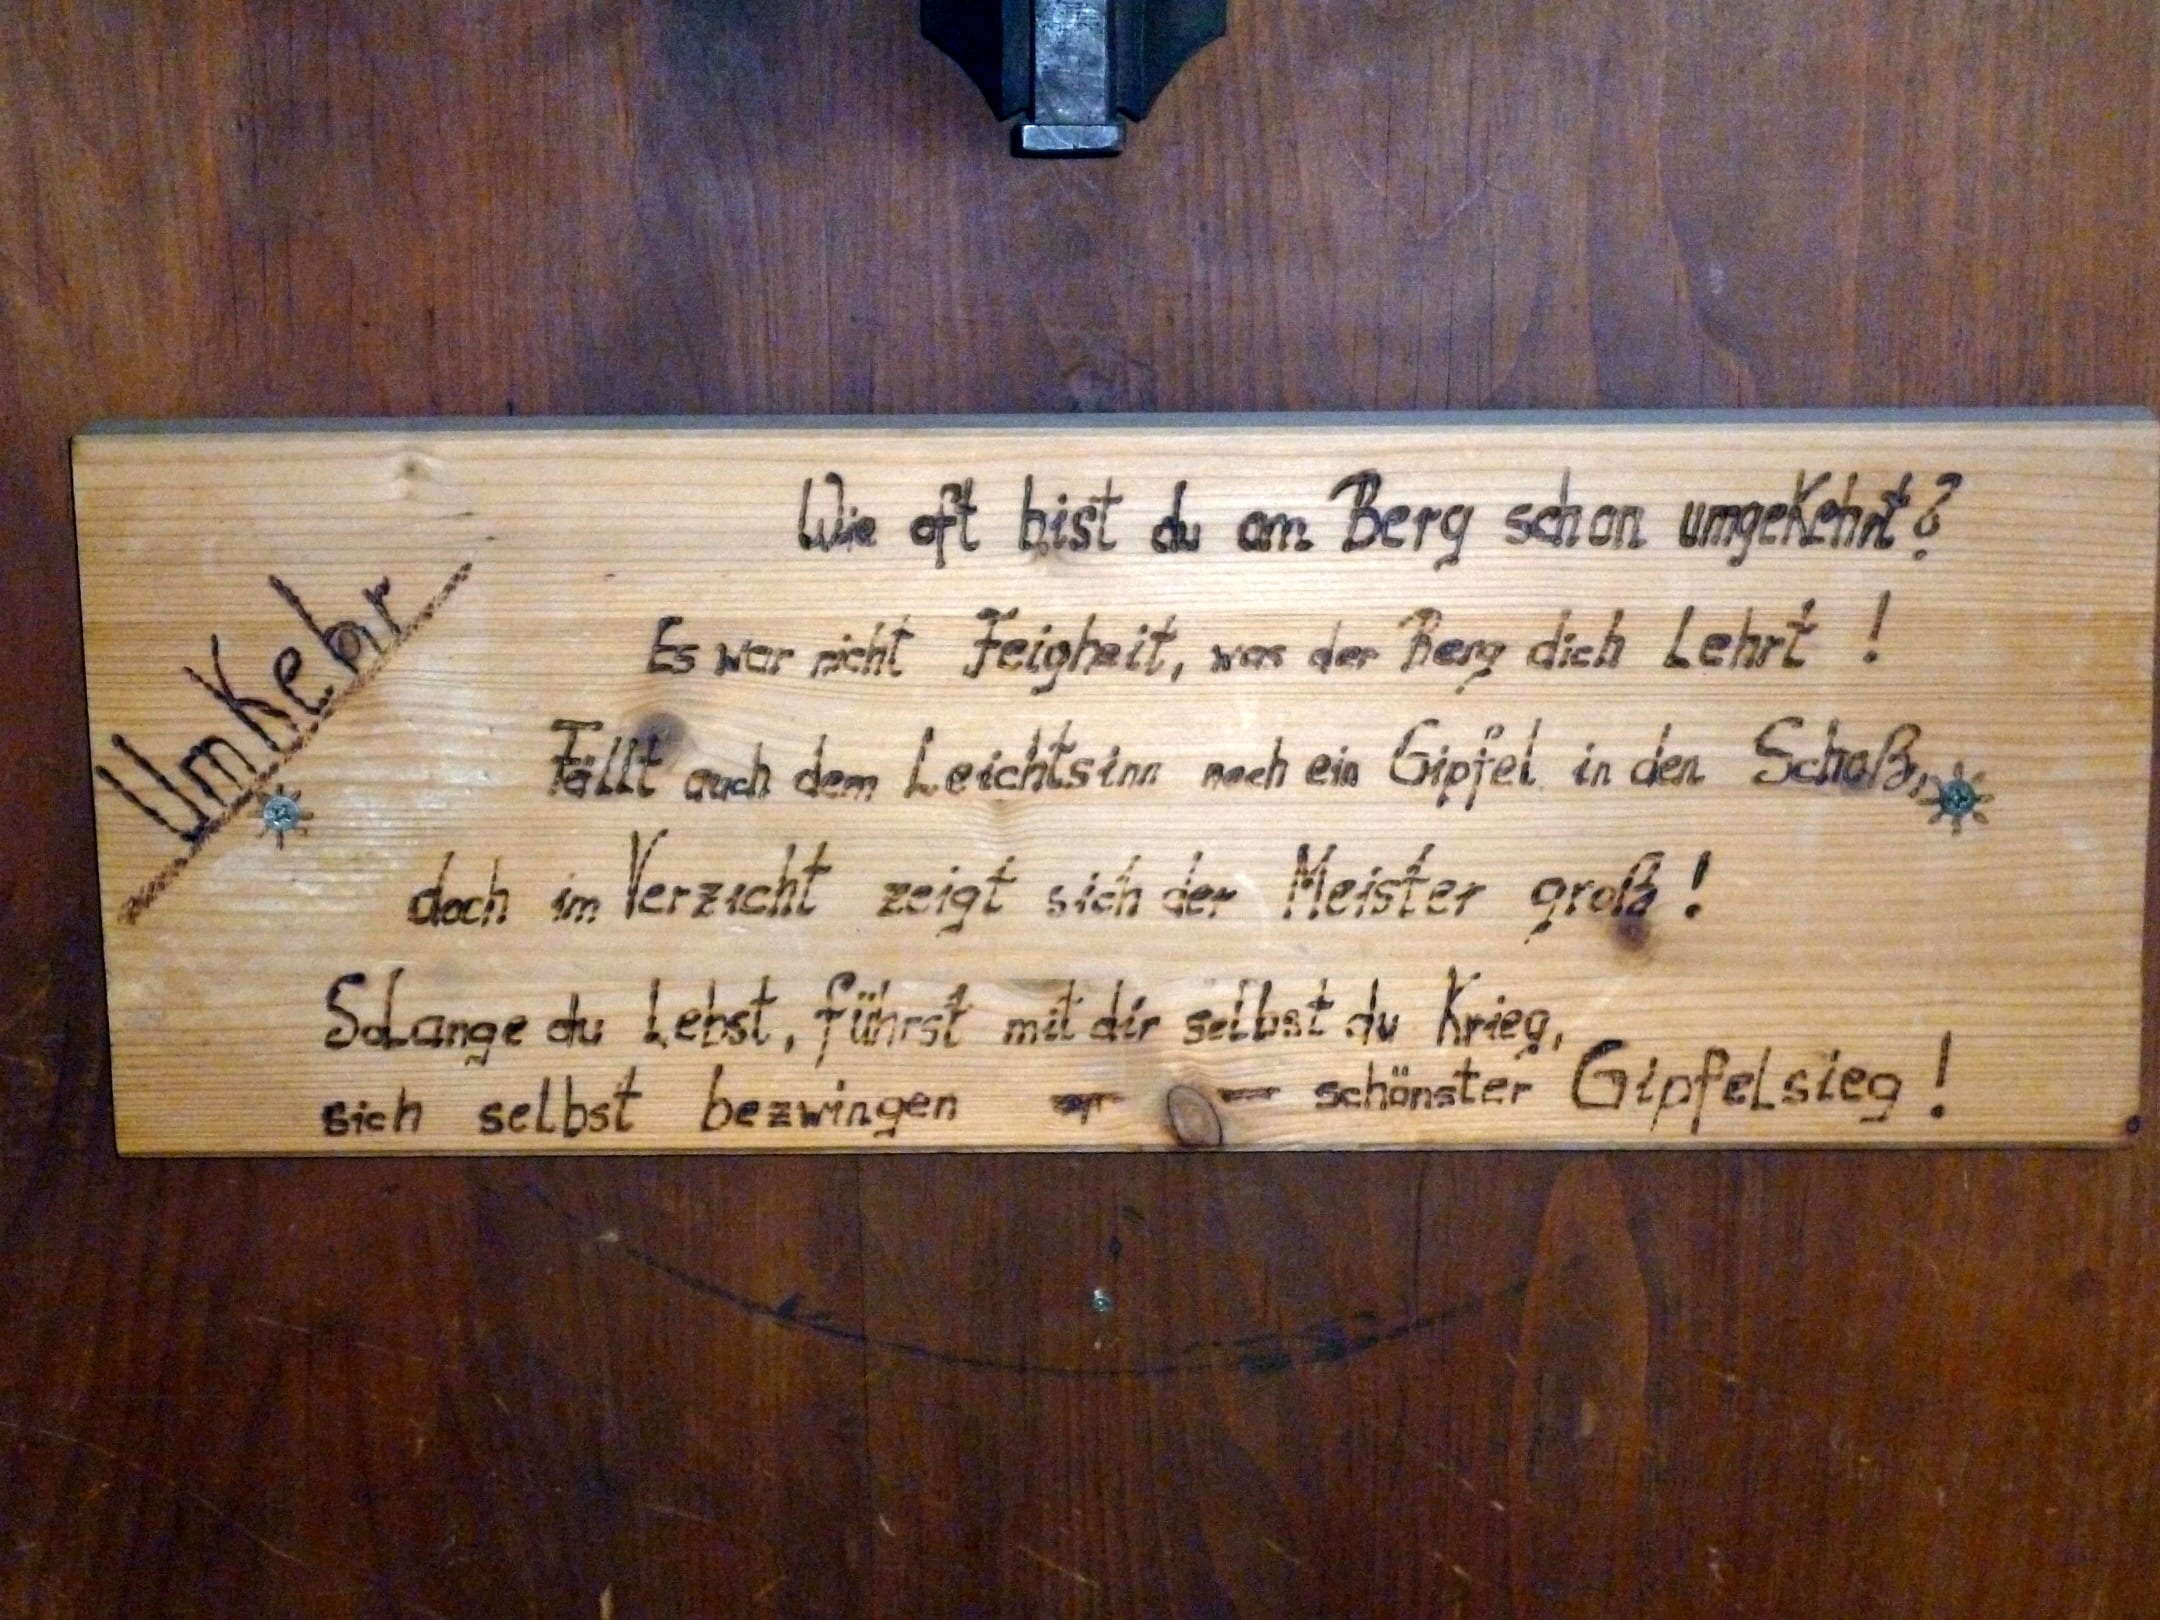 UmKehr
Wie oft bist du am Berg schon umgeKehrt?
Es war nicht Feigheit, was der Berg dich Lehrt !
Fällt auch dem Leichtsinn noch ein Gipfel in den Schoß,
doch im Verzicht zeigt sich der Meister groß !
SoLange du Lebst, führst mit dir selbst du Krieg,
sich selbst bezwingen - - schönster GipfeLsieg !